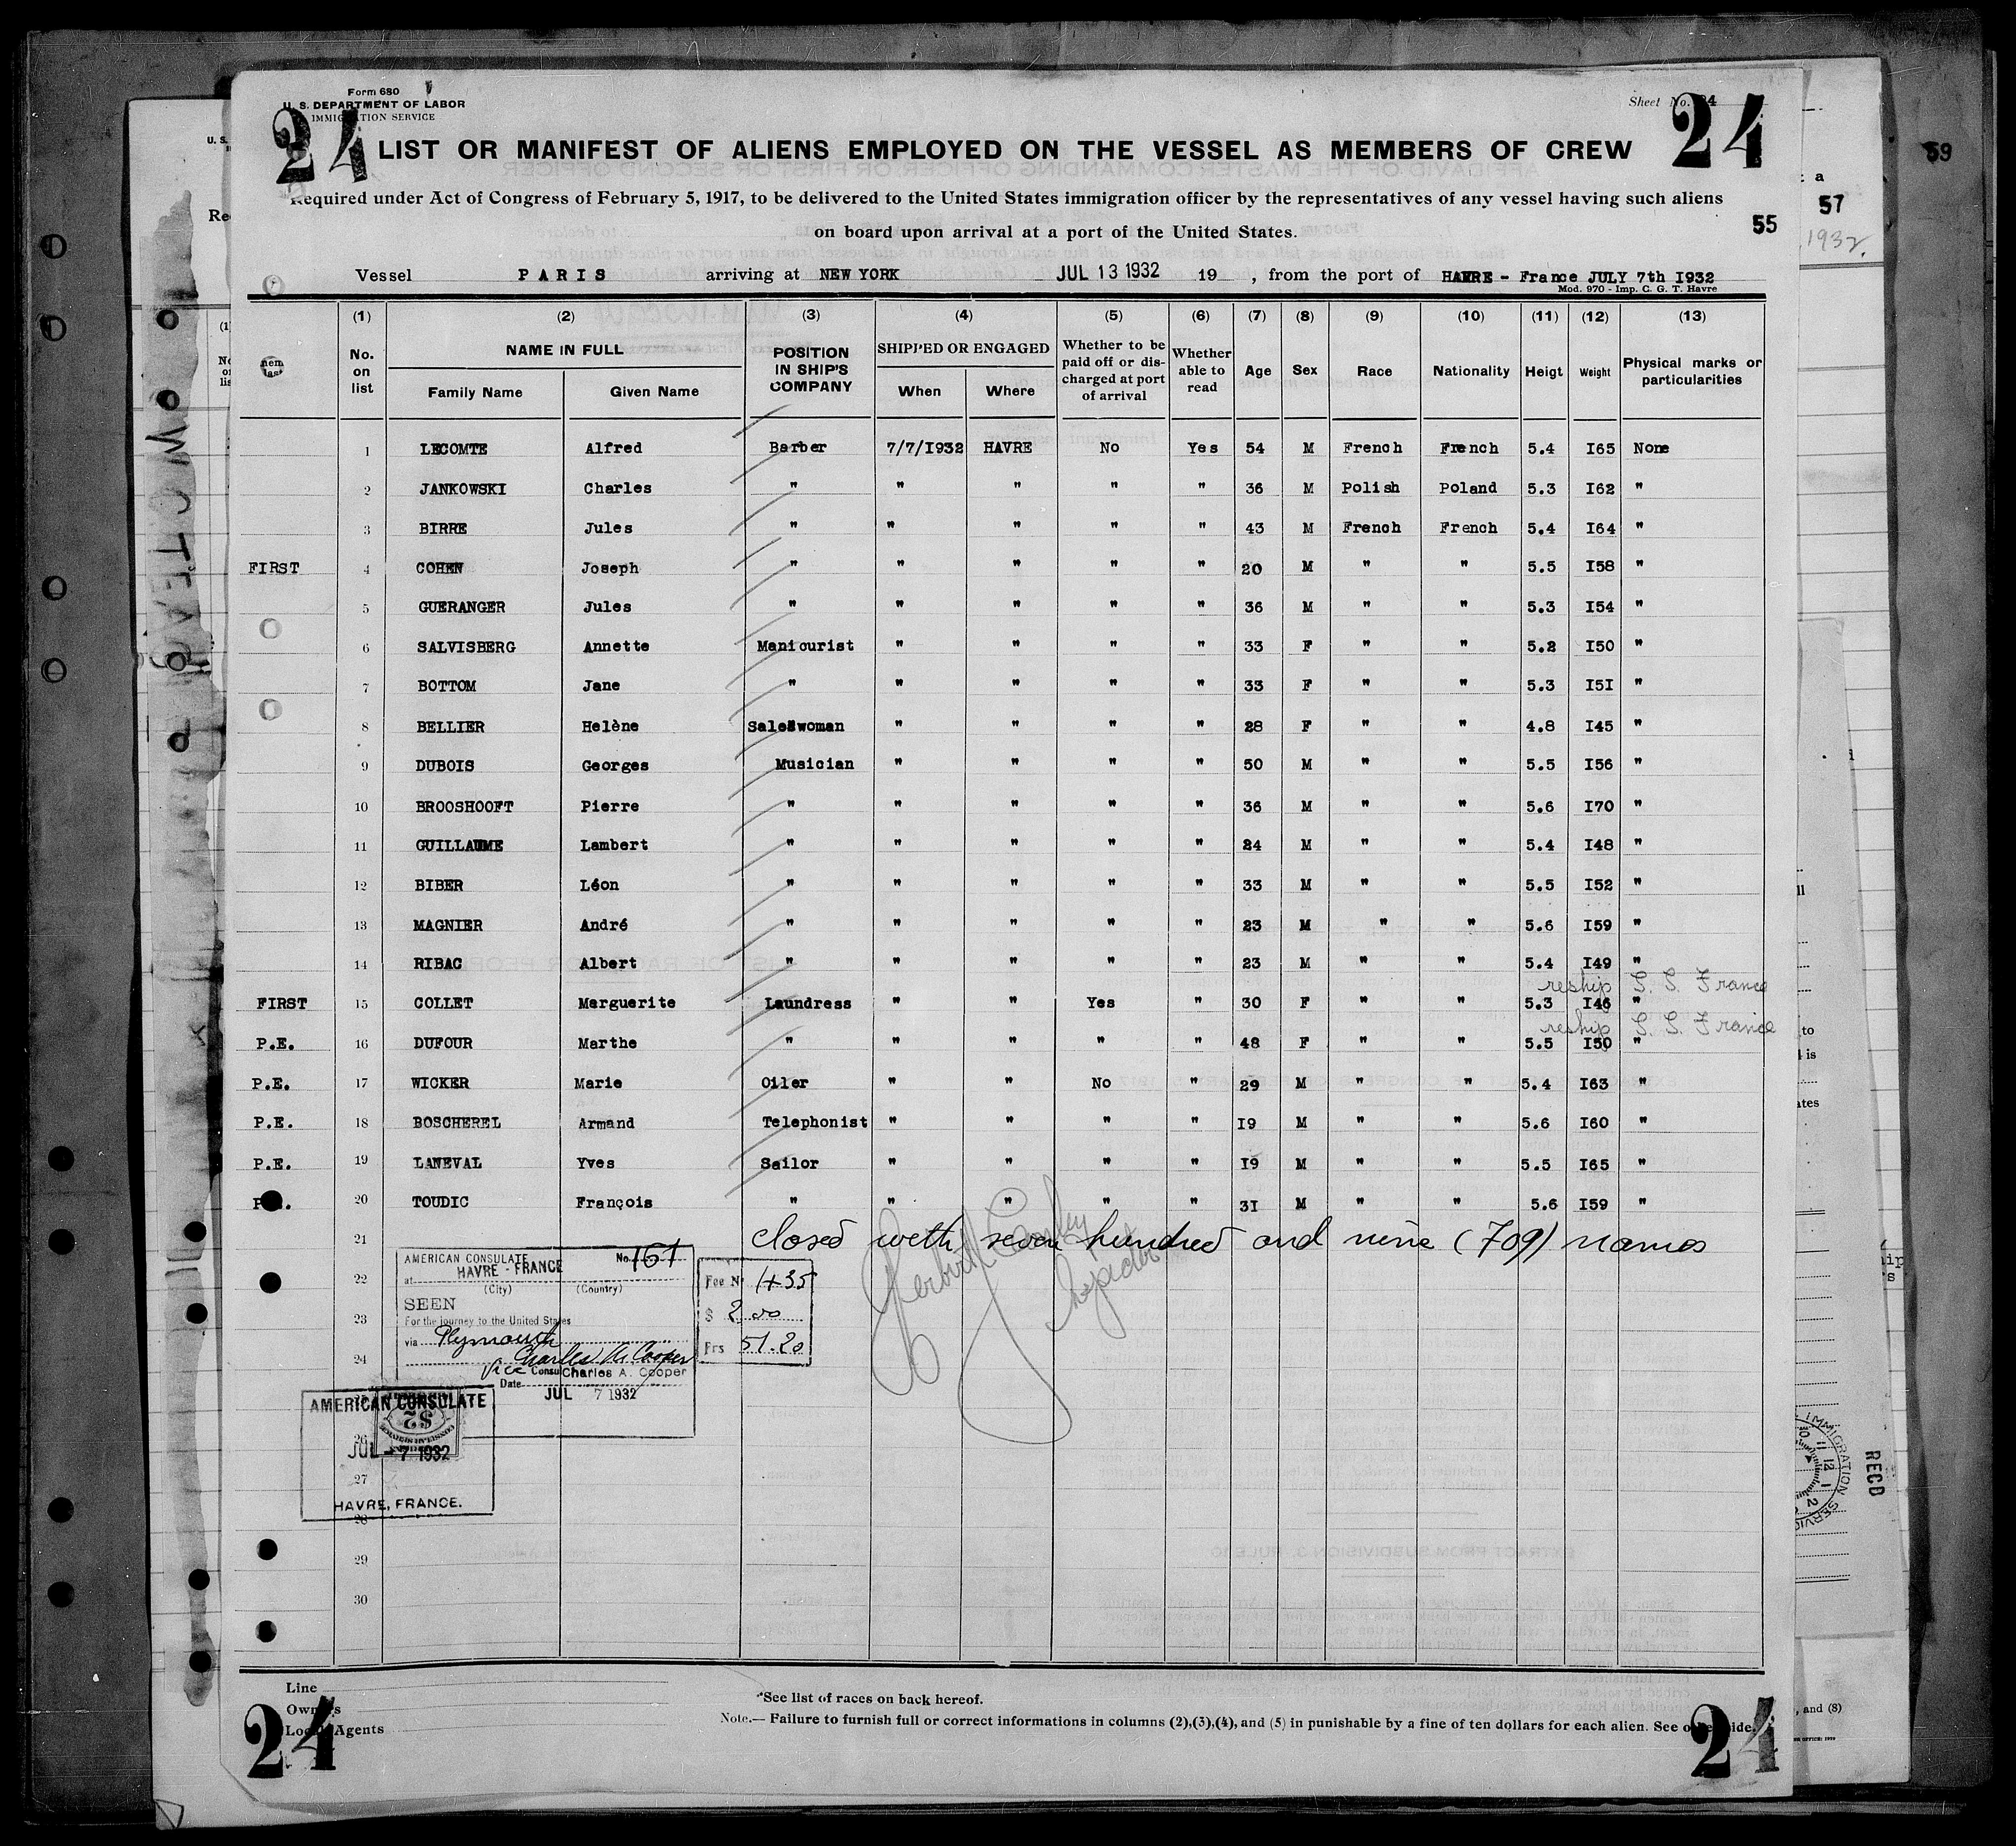 Form 680
U. S. DEPARTMENT OF LABOR
IMMIGRATION SERVICE
Sheet No. 24
24 24
LIST OR MANIFEST OF ALIENS EMPLOYED ON THE VESSEL AS MEMBERS OF CREW
Required under Act of Congress of February 5, 1917, to be delivered to the United States immigration officer by the representatives of any vessel having such aliens
on board upon arrival at a port of the United States.
55 57 59
1932
Vessel PARIS arriving at NEW YORK JUL 13 1932 19 , from the port of HAVRE - France JULY 7th I932
Mod. 970 - Imp. C. G. T. Havre
(1) (2) (3) (4) (5) (6) (7) (8) (9) (10) (11) (12) (13)
No. on list NAME IN FULL Family Name Given Name POSITION IN SHIP'S COMPANY SHIPPED OR ENGAGED When Where Whether to be paid off or discharged at port of arrival Whether able to read Age Sex Race Nationality Heigt Weight Physical marks or particularities
1 LECOMTE Alfred Barber 7/7/I932 HAVRE No Yes 54 M French French 5.4 I65 None
2 JANKOWSKI Charles " " " " " 36 M Polish Poland 5.3 I62 "
3 BIRRE Jules " " " " " 43 M French French 5.4 I64 "
FIRST 4 COHEN Joseph " " " " " 20 M " " 5.5 I58 "
5 GUERANGER Jules " " " " " 36 M " " 5.3 I54 "
6 SALVISBERG Annette Manicurist " " " " 33 F " " 5.2 I50 "
7 BOTTOM Jane " " " " " 33 F " " 5.3 I5I "
8 BELLIER Helène Saleswoman " " " " 28 F " " 4.8 I45 "
9 DUBOIS Georges Musician " " " " 50 M " " 5.5 I56 "
10 BROOSHOOFT Pierre " " " " " 36 M " " 5.6 I70 "
11 GUILLAUME Lambert " " " " " 24 M " " 5.4 I48 "
12 BIBER Léon " " " " " 33 M " " 5.5 I52 "
13 MAGNIER André " " " " " 23 M " " 5.6 I59 "
14 RIBAC Albert " " " " " 23 M " " 5.4 I49 "
reship S. S. France
FIRST 15 COLLET Marguerite Laundress " " Yes " 30 F " " 5.3 I46 "
reship S. S. France
P.E. 16 DUFOUR Marthe " " " " " 48 F " " 5.5 I50 "
P.E. 17 WICKER Marie Oiler " " No " 29 M " " 5.4 I63 "
P.E. 18 BOSCHEREL Armand Telephonist " " " " I9 M " " 5.6 I60 "
P.E. 19 LANEVAL Yves Sailor " " " " I9 M " " 5.5 I65 "
P.E. 20 TOUDIC François " " " " " 3I M " " 5.6 I59 "
21 closed with seven hundred and nine (709) names
22
23
24
26
27
28
29
30
AMERICAN CONSULATE No. 161
at HAVRE - FRANCE
(City) (Country)
SEEN
For the journey to the United States
via Plymouth
Charles A. Cooper
Vice Consul Charles A. Cooper
Date JUL 7 1932
Fee No 1435
$ 2.00
Frs 51.20
AMERICAN CONSULATE
$2
JUL -7 1932
HAVRE, FRANCE.
IMMIGRATION SERVICE
RECD
Line
Owners
Local Agents
*See list of races on back hereof.
Note.— Failure to furnish full or correct informations in columns (2),(3),(4), and (5) in punishable by a fine of ten dollars for each alien. See other side.
, and (8)
24 24